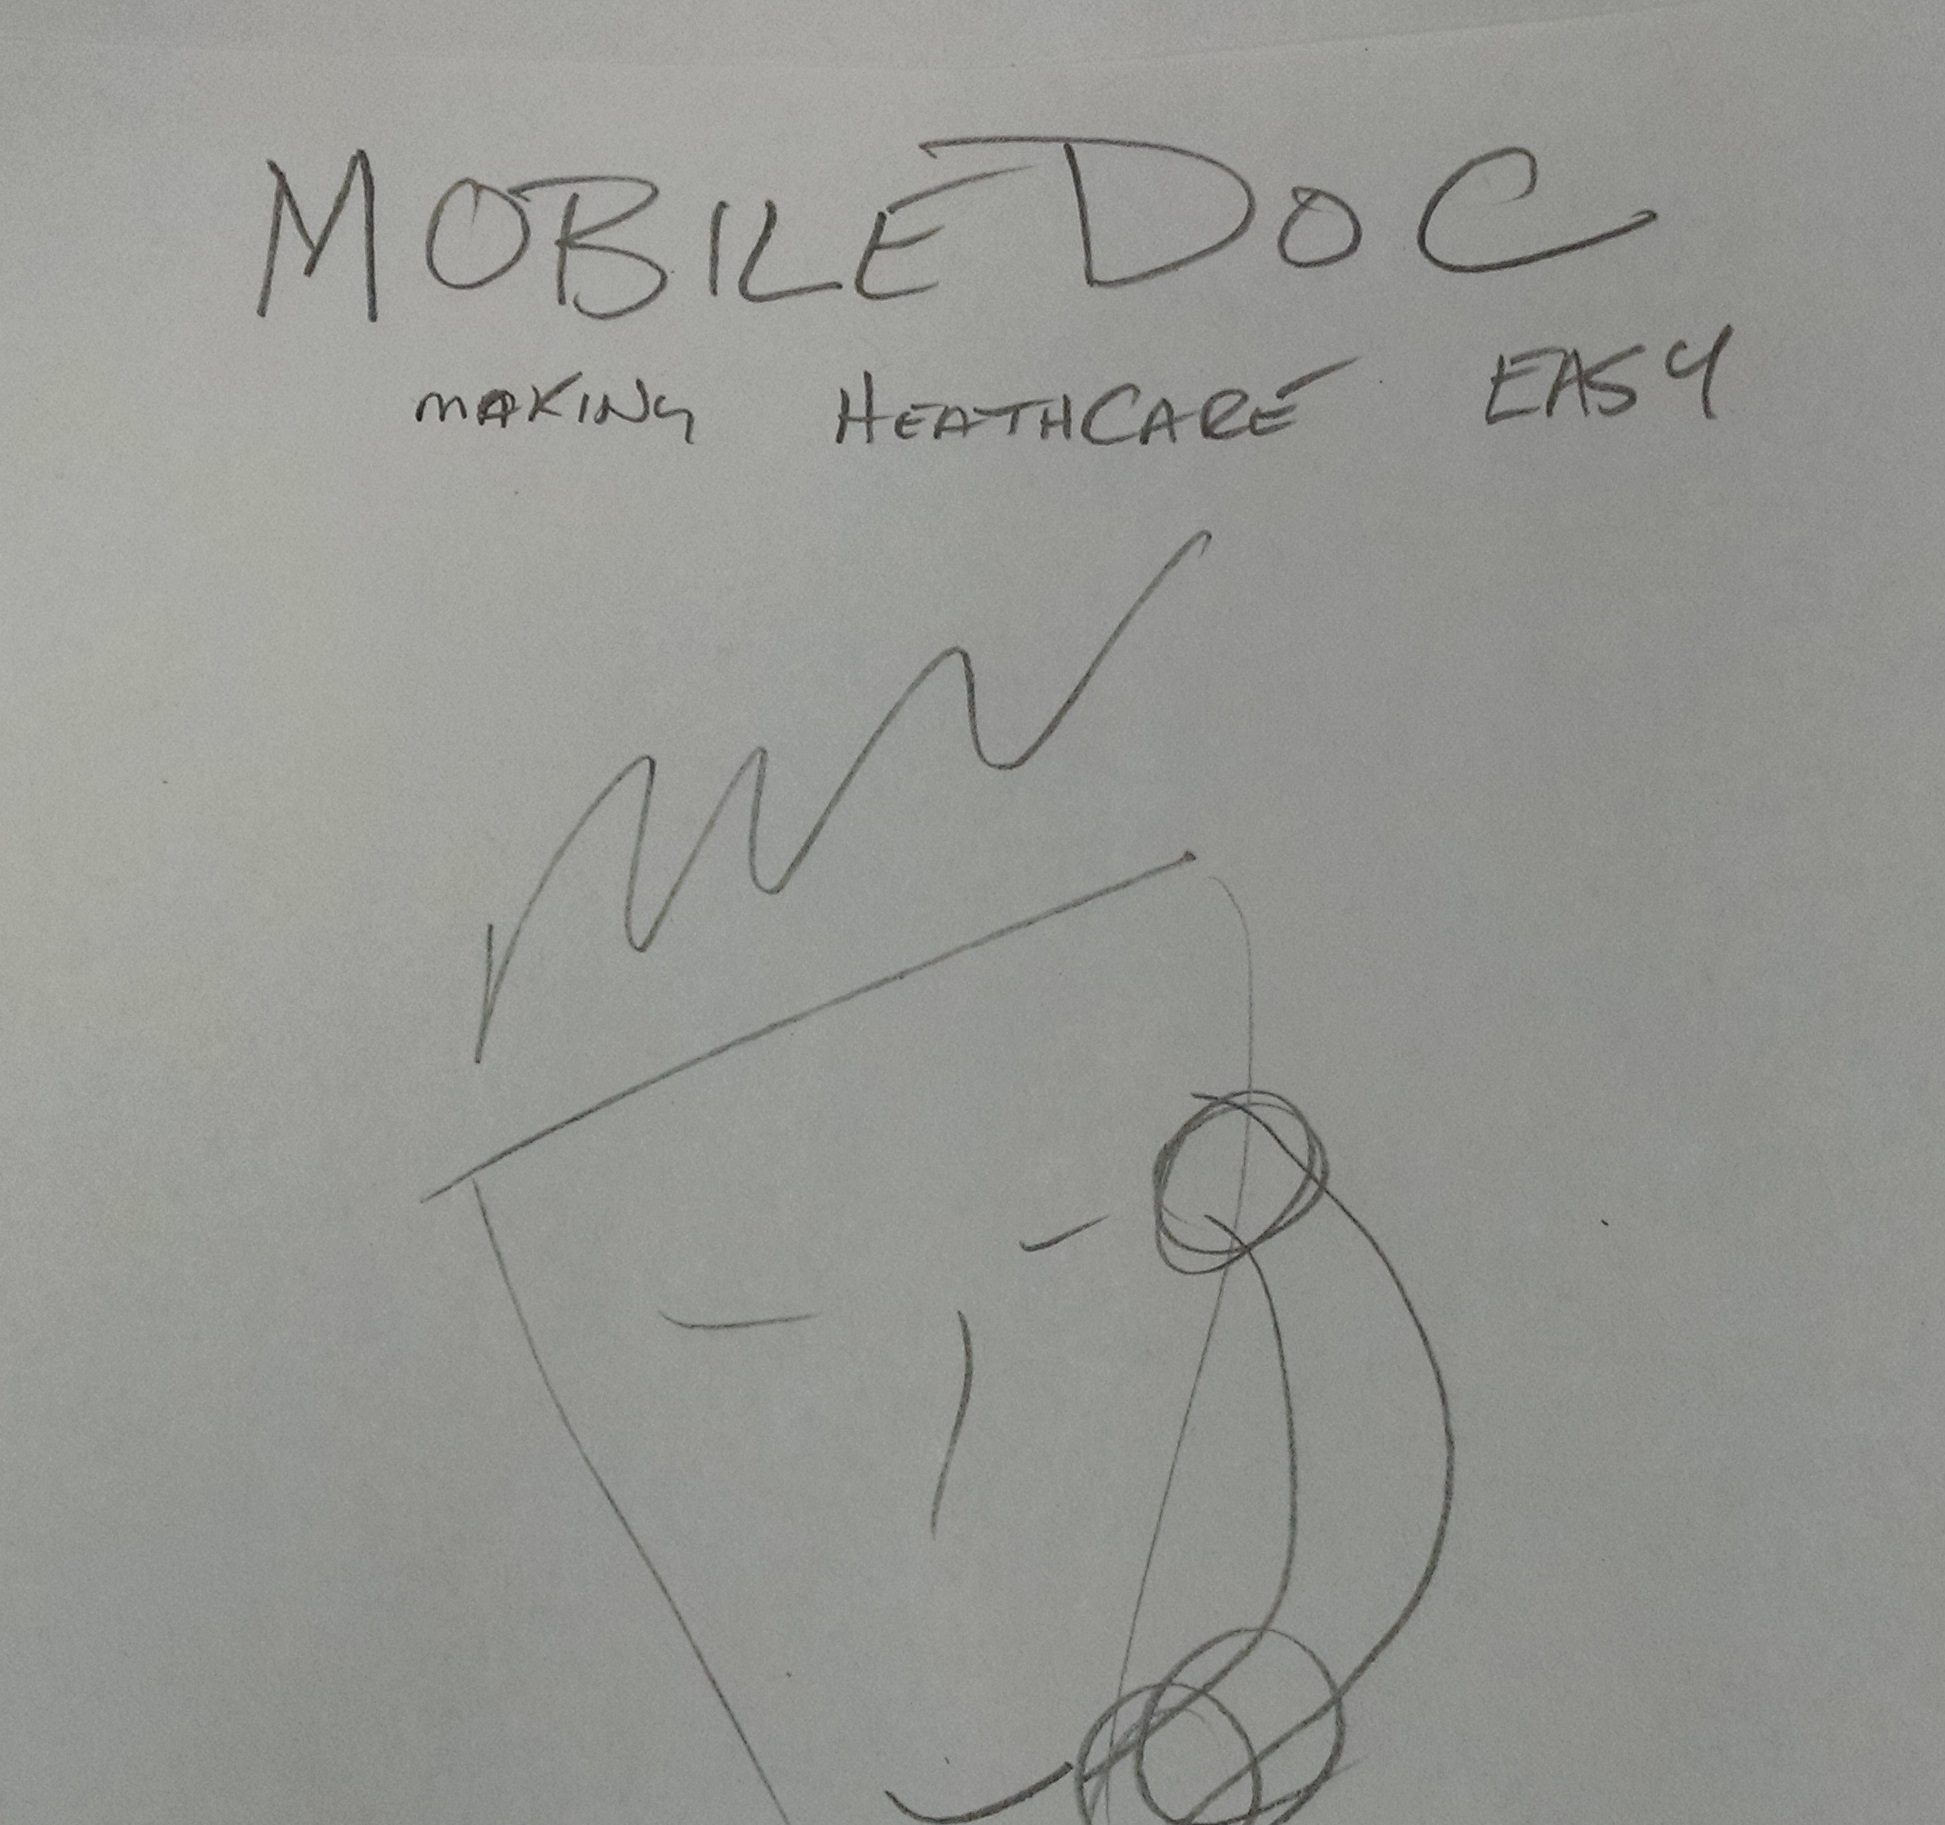 MOBILE DOC
MAKING HEATHCARE EASY